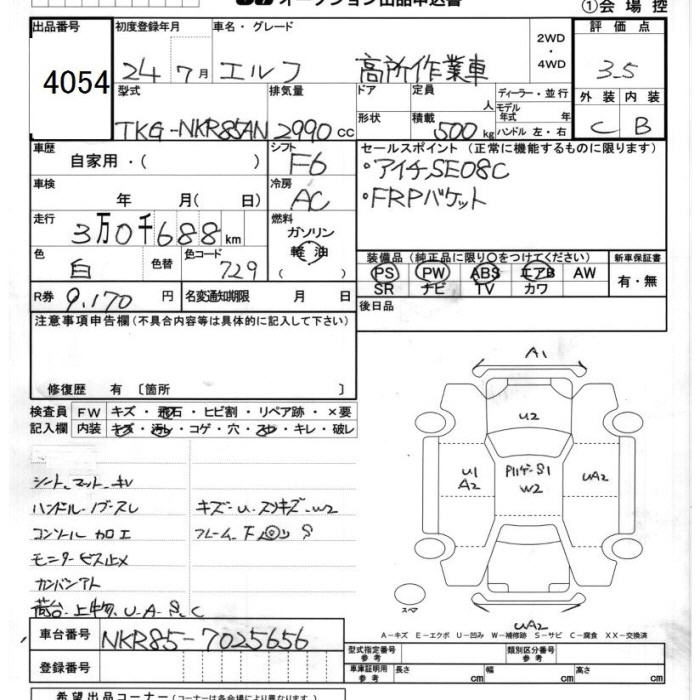 オークション出品申込書
①会場控
出品番号
4054
初度登録年月
24 7月
車名・グレード
エルフ 高所作業車
2WD
・
4WD
評価点
3.5
型式
TKG-NKR85AN
排気量
2990cc
ドア
形状
定員 人
積載 500kg
ディーラー・並行
モデル年式 年
ハンドル 左・右
外装 内装
C B
車歴
自家用・( )
シフト
F6
セールスポイント(正常に機能するものに限ります)
・アイチSE08C
・FRPバケット
車検 年 月( 日)
冷房
AC
走行
3万0千688km
燃料
ガソリン
軽油
( )
色
白
色替
色コード
729
装備品(純正品に限り○をつけてください)
新車保証書
PS PW ABS エアB AW
SR ナビ TV カワ
有・無
R券 9,170円
名変通知期限 月 日
後日品
注意事項申告欄(不具合内容等は具体的に記入して下さい)
修復歴 有 〔箇所 〕
検査員 FW キズ・飛石・ヒビ割・リペア跡・×要
記入欄 内装 キズ・汚れ・コゲ・穴・スレ・キレ・破レ
シート、マット、キレ
ハンドル・ノブ・スレ
キズ・U・スリキズ・W2
コンソール 加工
フレーム、下廻り S
モニタービス止メ
カンバンアト
荷台・上物、U、A、S、C
A1
U2
U1
A2
S1
W2
UA2
スペア
UA2
A-キズ E-エクボ U-凹み W-補修跡 S-サビ C-腐食 XX-交換済
車台番号 NKR85-7025656
登録番号
型式指定番号 参考
類別区分番号 参考
車体証明用 参考 長さ cm 幅 cm 高さ cm
希望出品コーナー(コーナーは各会場により異なります)